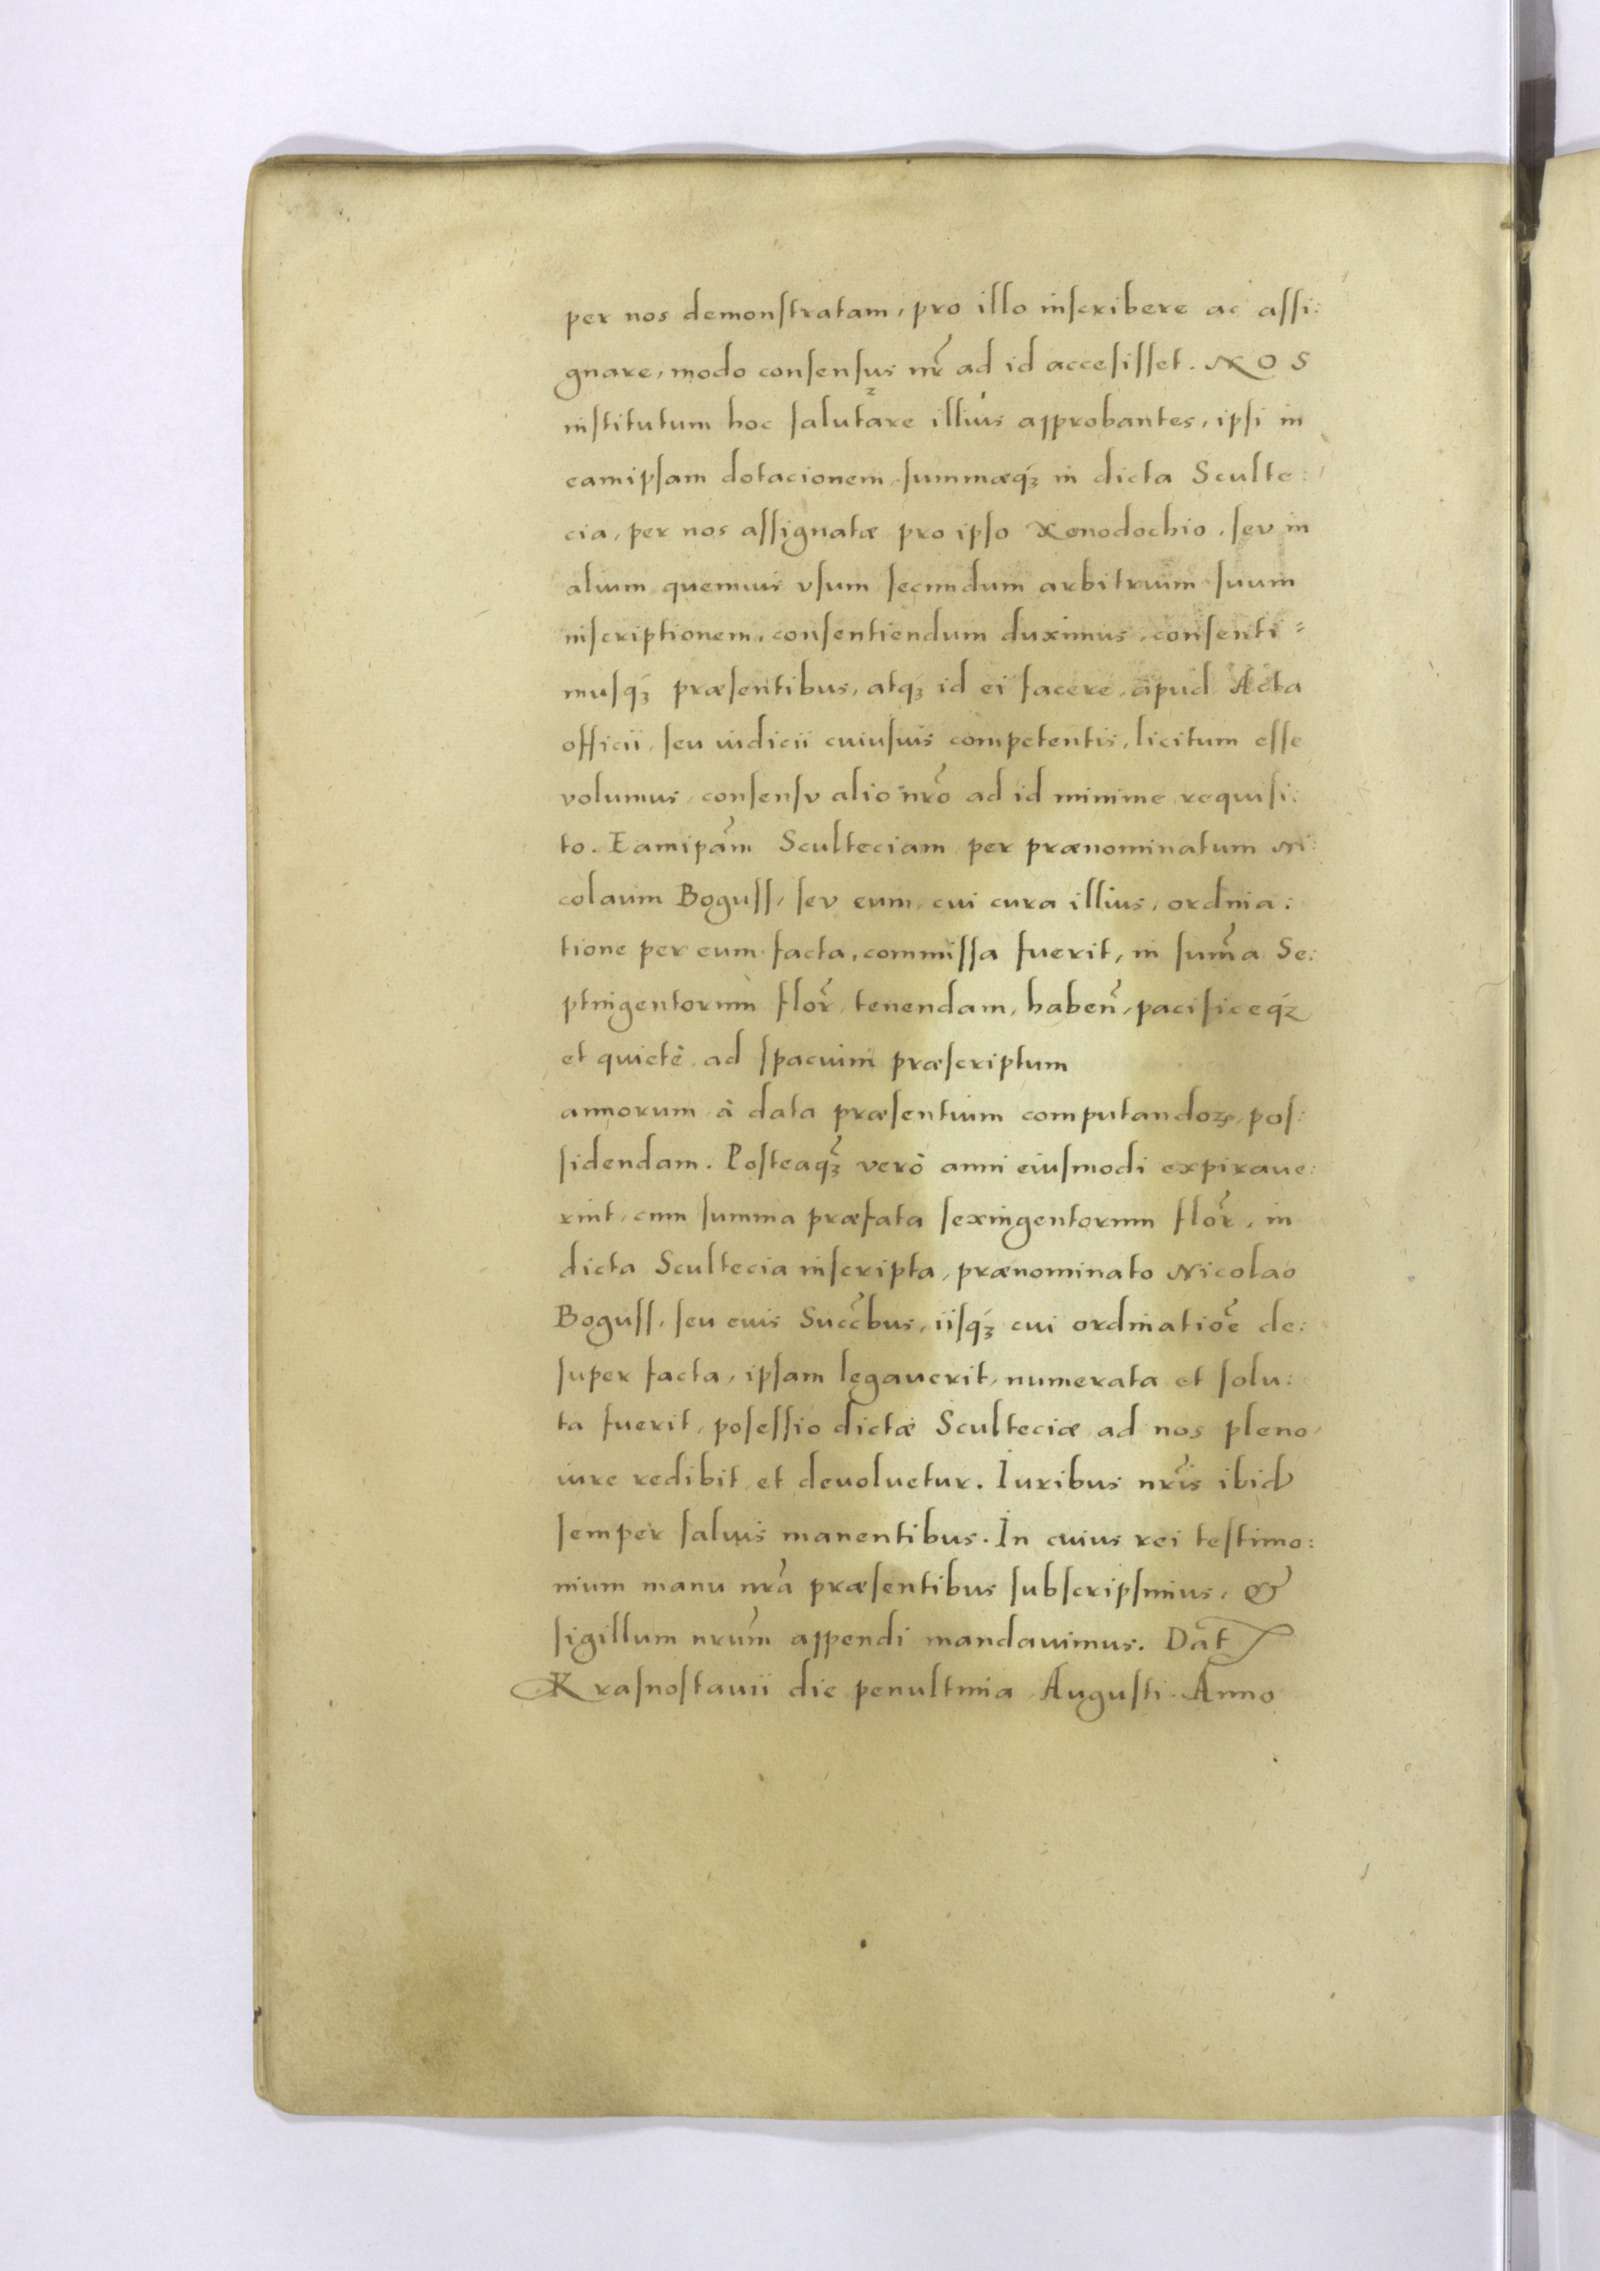 per nos demonſtratam, pro illo inſcribere ac aſſi:
gnare, modo conſenſus nr̃ ad id acceſiſſet. NOS
inſtitutum hoc ſalutare illius approbantes, ipſi in
eamipſam dotacionem, ſummæq́ꝫ in dicta Sculte:
cia, per nos aſſignatæ pro ipſo Xenodochio, ſev in
alium quemuis vſum ſecundum arbitrium ſuum
inſcriptionem, conſentiendum duximus, conſenti=
muſq́ꝫ præſentibus, atq́ꝫ id ei facere, apud Acta
officii, ſeu iudicii cuiuſuis competentis, licitum eſſe
volumus, conſenſv alio nr̃o ad id minime requiſi:
to. Eamip̃am Sculteciam per prænominatum Ni:
colaum Boguſſ, ſev eum, cui cura illius, ordina:
tione per eum facta, commiſſa fuerit, in ſum̃a Se:
ptingentorum flor̃, tenendam, habeñ, pacificeq́ꝫ
et quietè ad ſpacium præſcriptum
annorum à data præſentium computandoꝝ, poſ:
ſidendam. Poſteaq̃ꝫ verò anni eiuſmodi expiraue:
rint, cum ſumma præfata ſexingentorum flor̃, in
dicta Scultecia inſcripta, prænominato Nicolao
Boguſſ, ſeu euis Succ̃bus, iiſq́ꝫ cui ordinatiõe de:
ſuper facta, ipſam legauerit, numerata et ſolu:
ta fuerit, poſeſſio dictæ Scultecïæ ad nos pleno
iure redibit et deuoluetur. Iuribus nr̃is ibid
ſemper ſaluis manentibus. In cuius rei teſtimo:
nium manu nr̃a præſentibus ſubſcripſimus, &
ſigillum nrũm appendi mandauimus. Dat̃
Kraſnoſtauii die penultima Auguſti. Anno